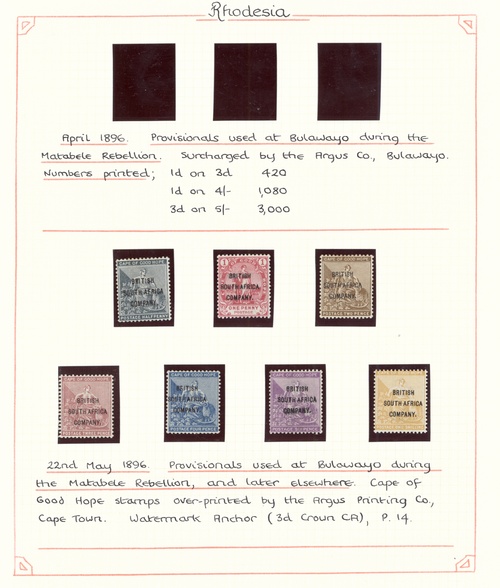 Rhodesia
April 1896. Provisionals used at Bulawayo during the
Matabele Rebellion. Surcharged by the Argus Co., Bulawayo.
Numbers printed; 1d on 3d 420
1d on 4/- 1,080
3d on 5/- 3,000
CAPE OF GOOD HOPE
BRITISH
SOUTH AFRICA
COMPANY.
POSTAGE HALFPENNY
BRITISH
SOUTH AFRICA
COMPANY.
ONE PENNY
CAPE OF GOOD HOPE
BRITISH
SOUTH AFRICA
COMPANY.
POSTAGE TWO PENCE
CAPE OF GOOD HOPE
BRITISH
SOUTH AFRICA
COMPANY.
CAPE OF GOOD HOPE
BRITISH
SOUTH AFRICA
COMPANY.
CAPE OF GOOD HOPE
BRITISH
SOUTH AFRICA
COMPANY.
BRITISH
SOUTH AFRICA
COMPANY.
22nd May 1896. Provisionals used at Bulawayo during
the Matabele Rebellion, and later elsewhere. Cape of
Good Hope stamps over-printed by the Argus Printing Co.,
Cape Town. Watermark Anchor (3d Crown CA), P. 14.